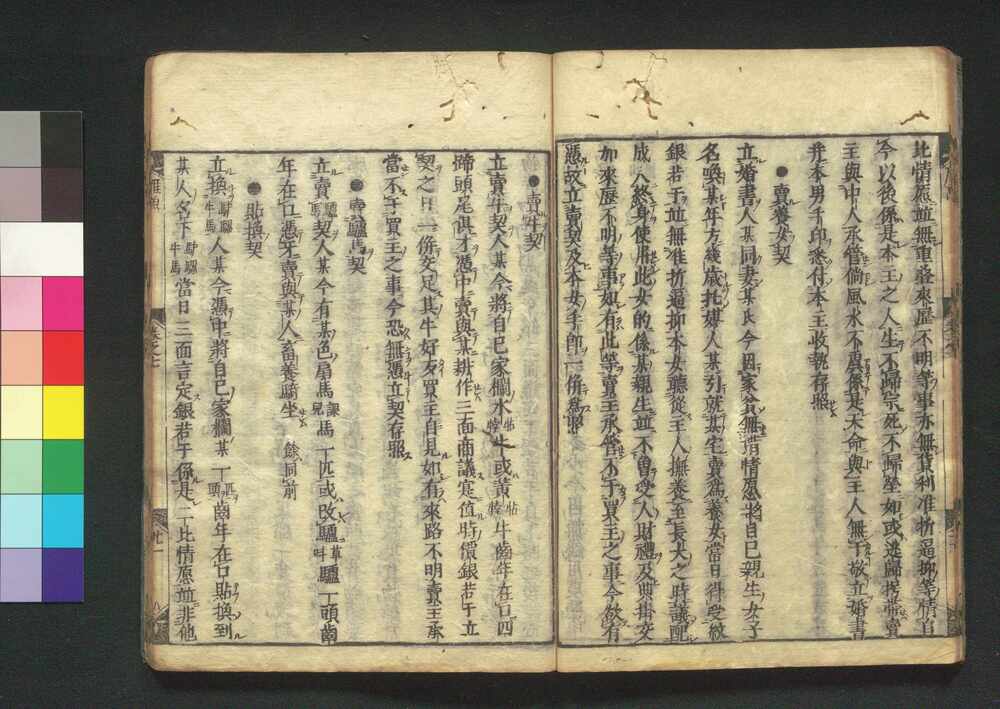 比情愿並無重疊來歷不明等事亦無貨利准折逼抑等情自
今以後係是本主之人生不歸宗死不歸塋如或逃歸拐帶賣
主與中人承管倘風水不虞係是天命與主人無干敬立婚書
并本男手印悉付本主收執存照
●賣養女契
立婚書人某同妻某氏今因家貧無措情愿將自己親生女子
名喚某年方幾歲托媒人某引就某宅賣為養女當日得受紋
銀若干並無准折逼抑本女聽從主人撫養至長大之時議配
成人終身使用此女的係某親生並不曾受人財禮及典掛交
加來歷不明等事如有此等賣主承管不干買主之事今欲有
憑故立賣契及本女手印一併為照
●賣牛契
立賣牛契人某今將自己家欄水牯牸牛或黃牯牸牛齒年在口四
蹄頭尾俱才憑中賣與某耕作三面商議寔值時價銀若干立
契之日一併交足其牛好歹買主自見如有來路不明賣主承
當不干買主之事今恐無憑立契存照
●賣驢馬契
立賣驢馬契人某今有某色扇馬課兒馬一匹或改驢草叫驢一頭齒
年在口憑牙賣與某人畜養騎坐 餘同前
●貼換契
立換騾驢牛馬人某今憑中將自己家欄某一匹頭齒年在口貼換到
某人名下騾驢牛馬當日三面言定銀若干係是二比情愿並非他